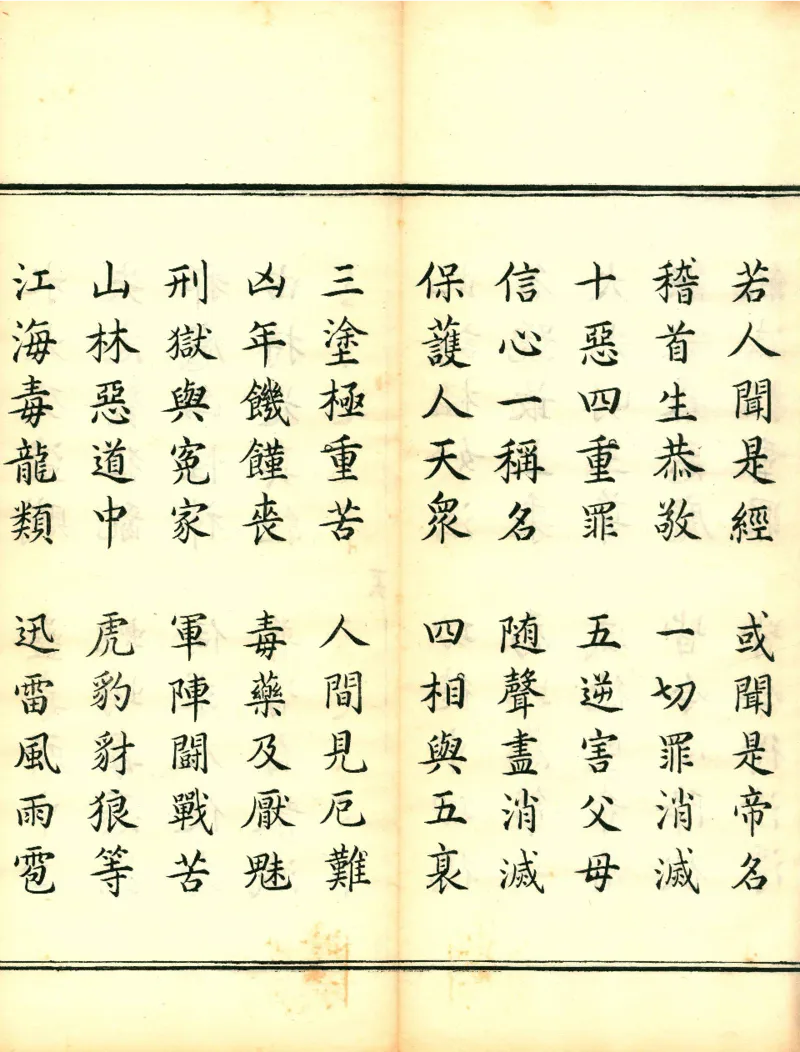 若人聞是經 或聞是帝名
稽首生恭敬 一切罪消滅
十惡四重罪 五逆害父母
信心一稱名 随聲盡消滅
保護人天眾 四相與五衰
三塗極重苦 人間見厄難
凶年饑饉喪 毒藥及厭魅
刑獄與寃家 軍陣鬪戰苦
山林惡道中 虎豹豺狼等
江海毒龍類 迅雷風雨雹